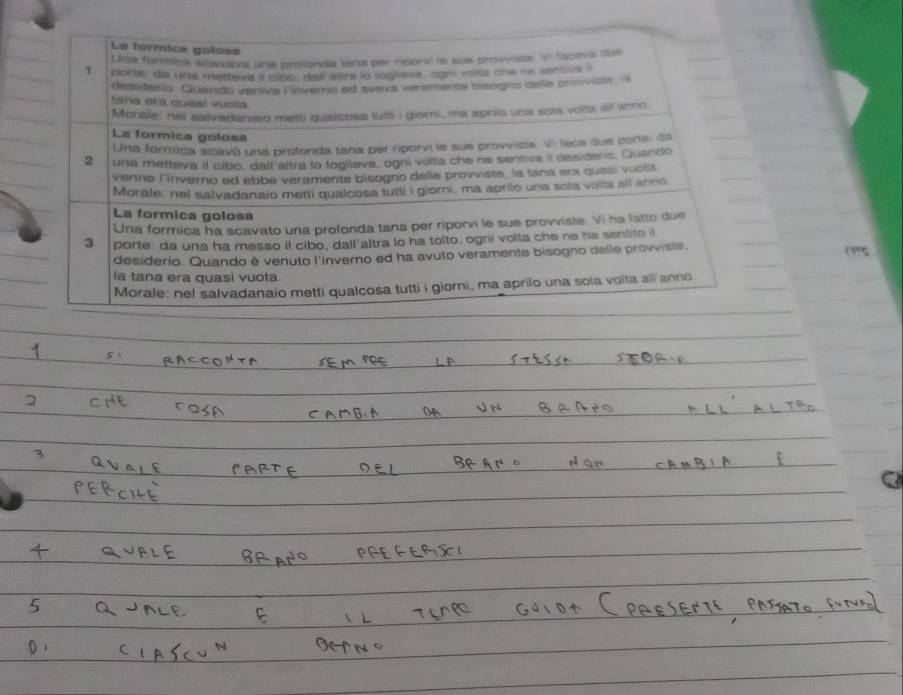 La formica golosa
Una formica scavava una profonda tana per riporvi le sue provviste. Vi faceva due
1 porte: da una metteva il cibo, dall'altra lo toglieva, ogni volta che ne sentiva il
desiderio. Quando veniva l'inverno ed aveva veramente bisogno delle provviste, la
tana era quasi vuota.
Morale: nel salvadanaio metti qualcosa tutti i giorni, ma aprilo una sola volta all'anno.
La formica golosa
Una formica scavò una profonda tana per riporvi le sue provviste. Vi fece due porte: da
2 una metteva il cibo, dall'altra lo toglieva, ogni volta che ne sentiva il desiderio. Quando
venne l'inverno ed ebbe veramente bisogno delle provviste, la tana era quasi vuota.
Morale: nel salvadanaio metti qualcosa tutti i giorni, ma aprilo una sola volta all'anno.
La formica golosa
Una formica ha scavato una profonda tana per riporvi le sue provviste. Vi ha fatto due
3 porte: da una ha messo il cibo, dall'altra lo ha tolto, ogni volta che ne ha sentito il
desiderio. Quando è venuto l'inverno ed ha avuto veramente bisogno delle provviste,
la tana era quasi vuota.
Morale: nel salvadanaio metti qualcosa tutti i giorni, ma aprilo una sola volta all'anno.
1 SI RACCONTA SEMPRE LA STESSA STORIA
2 CHE COSA CAMBIA DA UN BRANO ALL'ALTRO
3 QUALE PARTE DEL BRANO NON CAMBIA E
PERCHÈ
4 QUALE BRANO PREFERISCI
5 QUALE È IL TEMPO GUIDA (PRESENTE, PASSATO FUTURO)
DI CIASCUN BRANO